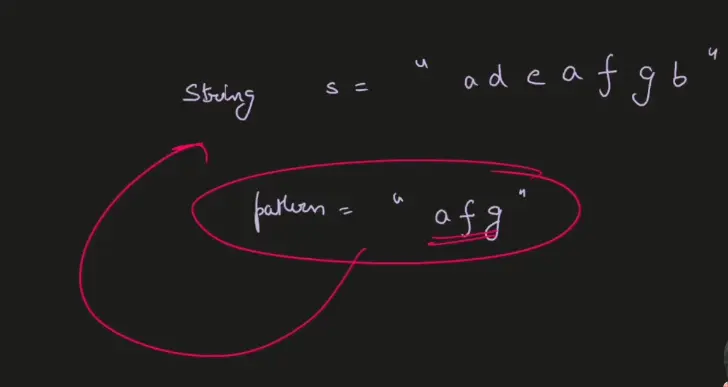 String s = " a d e a f g b "
pattern = " a f g "